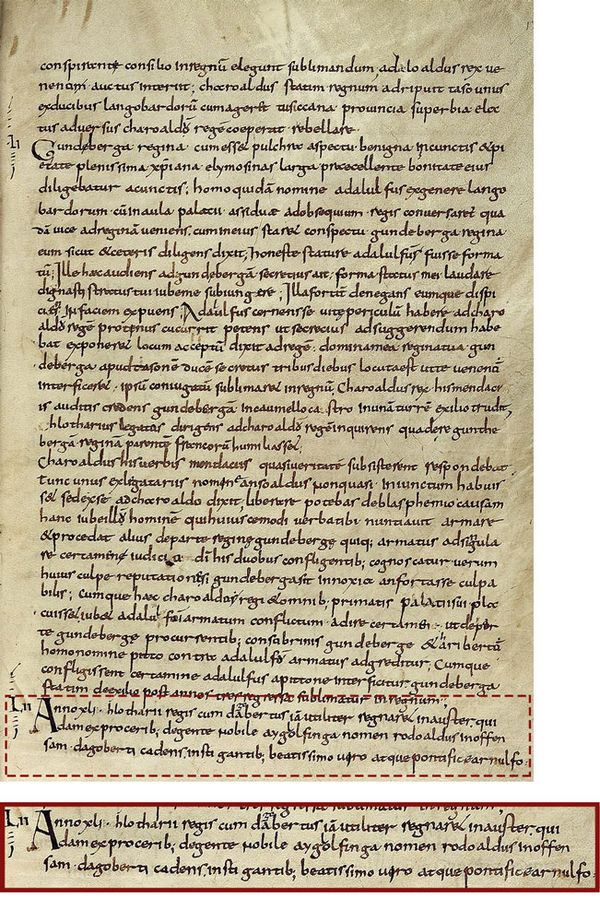 conspirante consilio inregnū elegunt sublimandum, adaloaldus rex ue
nenum auctus interiit; charoaldus statim regnum adripuit taso unus
exducibus langobardorū cumageret tusccana prouincia superbia elec
tus aduersus charoaldō regē coeperat rebellare.
LI Gundeberga regina cumesset pulchra aspectu benigna incunctis &pi
etate plenissima xp̄iana elymosinas larga praecellente bonitate eius
diligebatur acunctis; homo quidā nomine adalulfus exgenere lango
bardorum cū inaula palacii assiduae adobsequium regis conuersaret qua
dā uice adreginā ueniens, cumineius staret conspectu gundeberga regina
eum sicut &ceteris diligens dixit, honeste stature adalulfū fuisse forma
tū; Ille haec audiens ad gundebergā secretius ait; forma status mei laudare
dignasti stratus tui iubeme subiungere; Illa fortiter denegans eumque dispi
ciens in faciem expuens, Adalulfus cernens se uite periculū habere ad charo
aldō regē protenus cucurrit petens ut secrecius adsuggerendum habe
bat exponeret locum acceptū dixit adregē. dominamea regina tua gun
deberga apud tasonē ducē secretus tribus diebus locuta est ut te uenenū
interficeret. ipsū coniugatū sublimaret inregnū, Charoaldus rex his mendaci
is auditis credens gundebergā incaumello castro inunā turrē exilio trudit,
hlotharius legatus dirigens adcharoaldō regē inquirens quadere gunde
bergā reginā parentē francorū humiliasset
Charoaldus his uerbis mendaciis quasi ueritate subsisterent respondebat,
tunc unus exlegatariis nomenē ansoaldus non quasi iniunctum habuis
set sed exse ad charoaldo dixit; liberare potebas deblasphemio causam
hanc iube illō hominē qui huiuscemodi uerba tibi nuntiauit armare
&procedat alius departe regine gundeberge quiq; armatus ad singula
re certamine iudicio dī his duobus confligentib; cognoscatur uerum
huius culpe reputationis si gundeberga sit innoxia an fortasse culpa
bilis; Cumque haec charoaldo regi &omnib; primatis palatii sui pla
cuisset iubet adalulfū armatum conflictum adire certamini. ut deper
te gundeberge procurrentib; consobrinis gundeberge &ariberto
homo nomine pitto contra adalulfō armatus adgreditur, Cumque
confligissent certamine adalulfus apittone interficitur gundeberga
statim deexilio post annos tres regressa sublimatur in regnum;
LII Anno xli. hlotharii regis cum dabertus iā utiliter regnaret in auster, qui
dam exprocerib; degente nobile aygolfinga nomen rodoaldus inoffen
sam dagoberti cadens, instigantib; beatissimo uiro atque pontifice arnulfo.
LII Anno xli. hlotharii regis cum dabertus iā utiliter regnaret in auster, qui
dam exprocerib; degente nobile aygolfinga nomen rodoaldus inoffen
sam dagoberti cadens, instigantib; beatissimo uiro atque pontifice arnulfo.